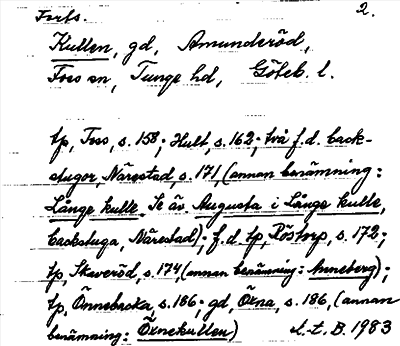 Forts. 2.
Kullen, gd, Amunderöd,
Foss sn, Tunge hd, Göteb. l.
tp, Foss, s. 158; Hult, s. 162; två f.d. back-
stugor, Närestad, s. 171, (annan benämning:
Långe kulle. Se äv. Augusta i Långe kulle,
backstuga, Närestad); f.d. tp, Röstorp, s. 172;
tp, Skaveröd, s. 174, (annan benämning: Anneberg);
tp, Önnebacka, s. 186; gd, Öxna, s. 186, (annan
benämning: Öxnekullen) 1983